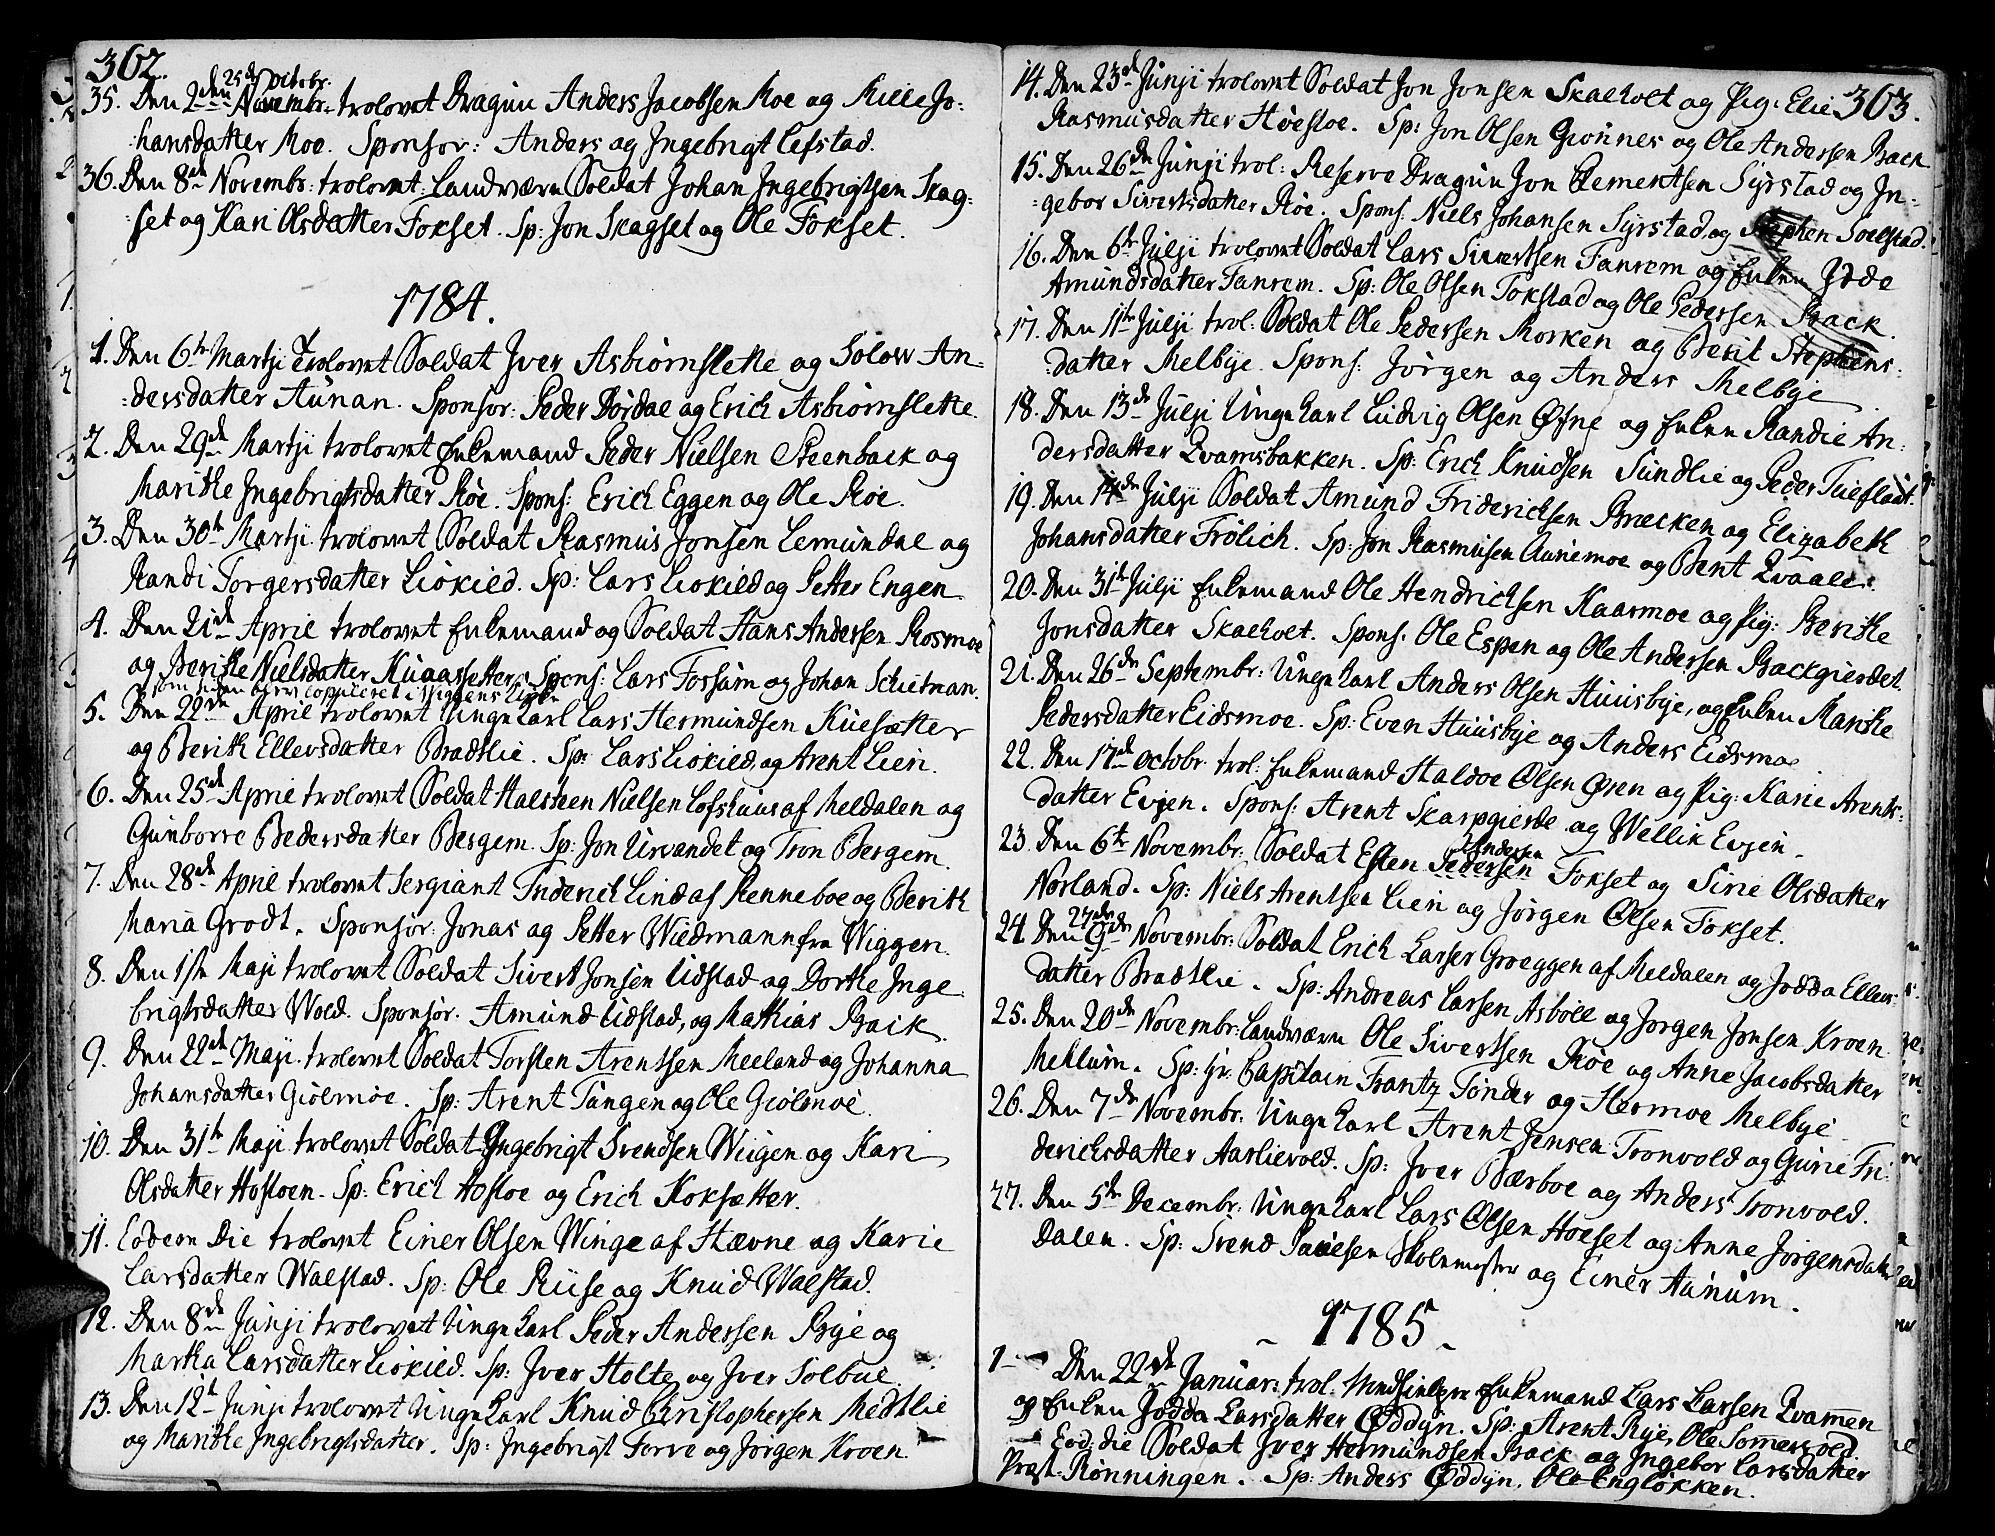 362.
25de Octobr:
35. Den 2den Novembr: trolovet Dragun Anders Jacobsen Moe og Mille Jo:
:hansdatter Moe. Sponsor: Anders og Ingebrigt Lefstad.
36. Den 8de Novembr: trolovet: Landværn Soldat Johan Ingebrigtsen Skag:
:set og Kari Olsdatter Fokset. Sp: Jon Skagset og Ole Fokset.
1784.
1. Den 6te Martji trolovet Soldat Iver Asbiørnslette og Solow An:
:dersdatter Aunan. Sponsor: Peder Dørdal og Erich Asbiørnslette.
2. Den 29de Martji trolovet Enkemand Peder Nielsen Steenback og
Marithe Ingebrigtsdatter Røe. Spons: Erich Eggen og Ole Røe.
3. Den 30te Martji trolovet Soldat Rasmus Jonsen Lemundal og
Randi Torgersdatter Liøkild. Sp: Lars Liøkild og Petter Engen
4. Den 21de April trolovet Enkemand og Soldat Hans Andersen Rosmoe
og Berithe Nielsdatter Kuaassetter. Spons: Lars Fossum og Johan Schutman.
som siden blev copuleret i Viggens Kirke
5. Den 22de April trolovet Ungekarl Lars Hermundsen Kuesætter
og Berith Ellevsdatter Bradtlie. Sp: Lars Liøkild, og Arent Lien.
6. Den 25de April trolovet Soldat Halsteen Nielsen Lofshuus af Meldalen og
Gunborre Pedersdatter Bergem. Sp: Jon Urvandet og Tron Bergem.
7. Den 28de April trolovet Sergiant Friderich Lind af Renneboe og Berith
Maria Grodt. Sponsor: Jonas og Petter Widmann fra Wiggen.
8. Den 1ste Maji trolovet Soldat Sivert Jonsen Udstad og Dorthe Inge
brigtsdatter Wold. Sponsor: Amund Uidstad, og Mathias Back
9. Den 22de Maji trolovet Soldat Torsten Arentsen Meeland og Johanna
Johansdatter Giølmøe. Sp: Arent Tangen og Ole Giølmoe.
10. Den 31te Maji trolovet Soldat Ingebrigt Svendsen Wiigen og Kari
Olsdatter Hosloen. Sp: Erich Hosloe og Erich Koksætter.
11. Eodem Die trolovet Einer Olsen Winge af Hævne og Karie
Larsdatter Walstad. Sp: Ole Ruse og Knud Walstad.
12. Den 8de Junji trolovet Ungekarl Peder Andersen Bye og
Martha Larsdatter Liøkild. Sp: Iver Holte og Iver Solbue.
13. Den 12te Junji trolovet Ungekarl Knud Christophersen Medtlie
og Marithe Ingebrigtsdatter. Sp: Ingebrigt Forre og Jørgen Kroen.
363.
14. Den 23de Junji trolovet Soldat Jon Jonsen Skaeholt og Pig: Elie
Rasmusdatter Høesloe. Sp: Jon Olsen Grønnes og Ole Andersen Back
15. Den 26de Junji trol: Reserve Dragun Jon Clementsen Syrstad og In:
:gebor Sivertsdatter Røe. Spons: Niels Johansen Syrstad, og Stephen Soelstad.
16. Den 6te Julji trolovet Soldat Lars Sivertsen Fanrem og Enken Jode
Amundsdatter Fanrem. Sp: Ole Olsen Fokstad og Ole Pedersen Back.
17. Den 11te Julji trol: Soldat Ole Pedersen Morken og Berit Stephens:
:datter Melbye. Spons: Jørgen og Anders Melbye
18. Den 13de Julji Ungekarl Ludvig Olsen Øfne og Enken Randie An:
dersdatter Qvamsbakken. Sp: Erich Knudsen Sundlie og Peder Tueflaat.
19. Den 14de Julji Soldat Amund Friderichsen Brecken og Elizabeth
Johansdatter Frølich. Sp: Jon Rasmusen Aunemoe og Bent Qvaale.
20. Den 31te Julji Enkemand Ole Hendrichsen Kaarmoe og Pig: Berithe
Jonsdatter Skaeholt. Spons: Ole Espen og Ole Andersen Backgierdet
21. Den 26de Septembr: Ungekarl Anders Olsen Huusbye, og Enken Marithe
Pedersdatter Eidsmoe. Sp: Even Huusbye og Anders Eidsmoe
22. Den 17de Octobr trol: Enkemand Haldoe Olsen Øren og Pig: Karie Arents:
datter Evjen. Spons: Arent Skarpgierde og Wellik Evjen.
23. Den 6te Novembr: Soldat Esten Pedersen Fokset og Sirie Olsdatter
Andersen
Norland. Sp: Niels Arentsen Lien og Jørgen Olsen Fokset.
24. Den 9de Novembr: Soldat Erich Larsen Groeggen af Meldalen og Jodda Ellevs:
27de
datter Bradtlie. Sp: Andreas Larsen Asbøll og Jørgen Jonsen Kroen
25. Den 20de Novembr: Landværn Ole Sivertsen Røe og Anne Jacobsdatter
Mehlum. Sp: hr: Capitain Frantz Tønder og Hermoe Melbye.
26. Den 7de Novembr: Ungekarl Arent Jensen Tronvold og Gurie Fri:
derichsdatter Aarlievold. Sp: Iver Bærboe og Anders Tronvold.
27. Den 5te Decembr: Ungekarl Lars Olsen Hoeset og Anne Jørgensdatter
Dalen. Sp: Svend Paulsen Skolemester og Einer Aunum.
1785
1 Den 22de Januar: trol: Enkemand Lars Larsen Qvammen
og Enken Jodda Larsdatter Oddyn. Sp: Arent Rye, Ole Sommervold.
Eod: die Soldat Iver Hermundsen Back og Ingebor Larsdatter
Præst-Rønningen. Sp: Anders Oddyn, Ole Engløkken.